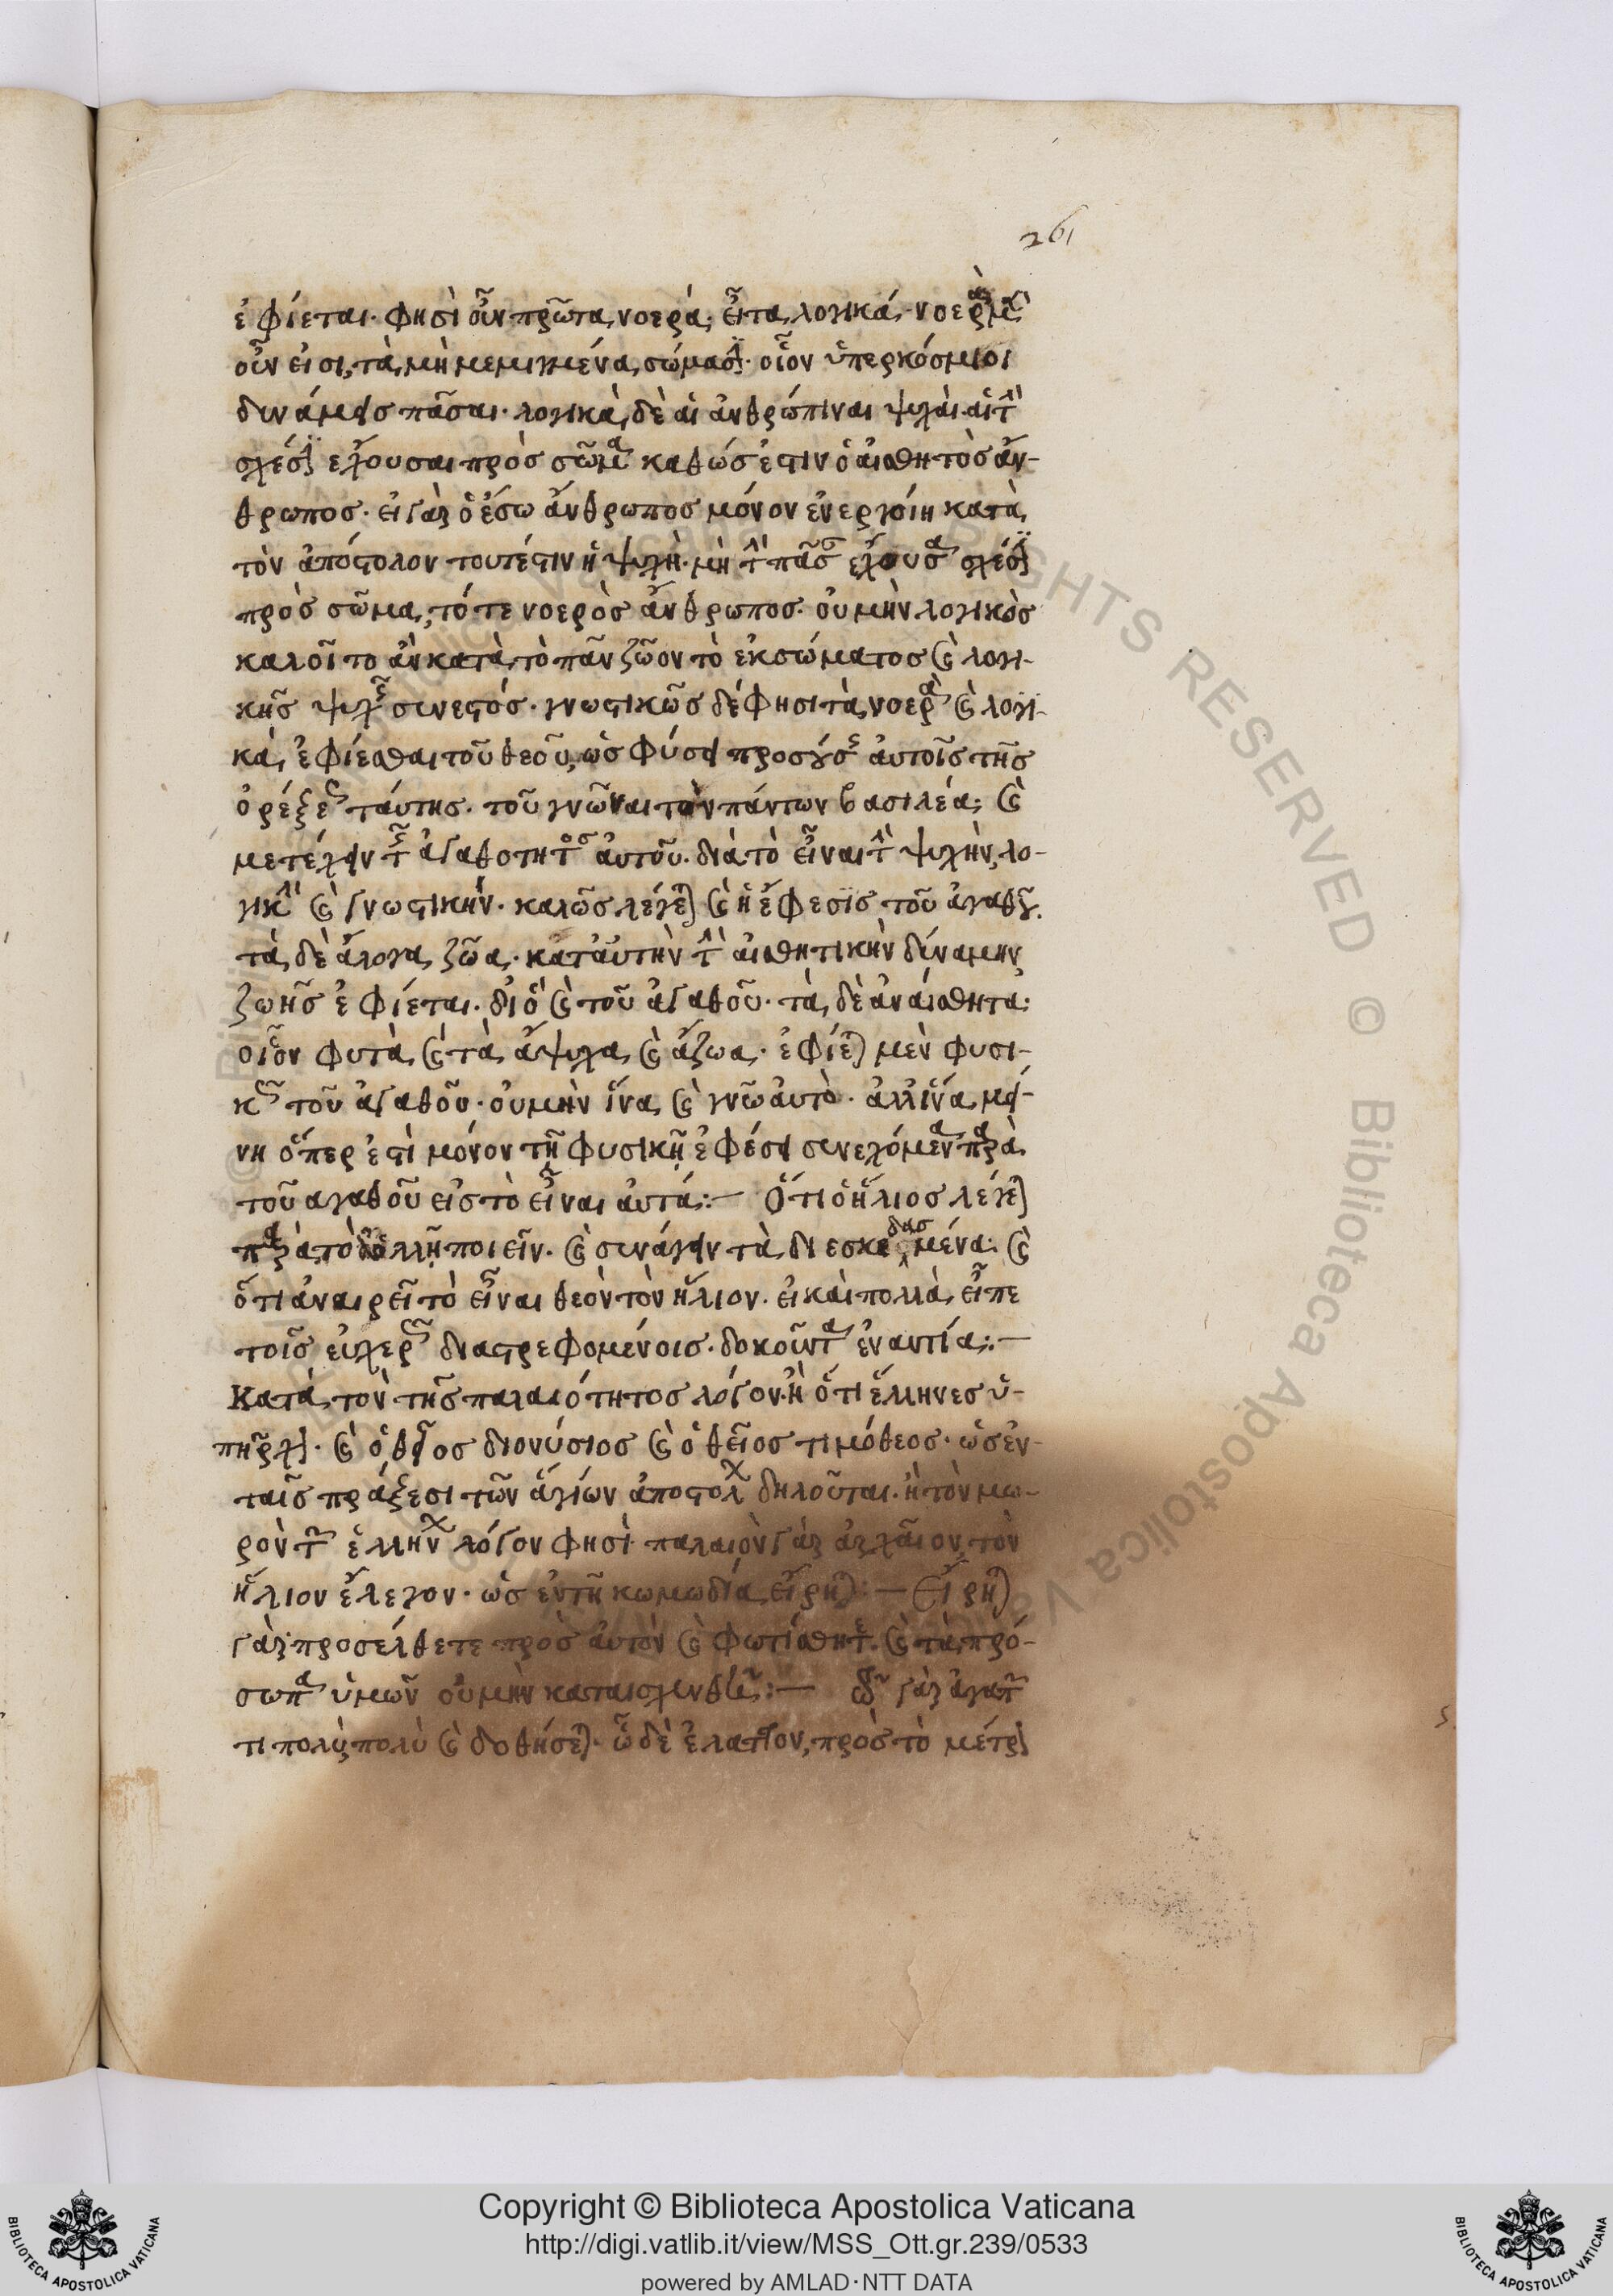 261
ἐφίεται· φησὶ οὖν πρῶτα νοερά· εἶτα λογικά· νοερὰ μὲν
οὖν εἰσι, τὰ μὴ μεμιγμένα σώμασιν· οἷον ὑπερκόσμιοι
δυνάμεις πᾶσαι· λογικὰ δὲ αἱ ἀνθρώπιναι ψυχαὶ αἱ τὴν
σχέσιν ἔχουσαι πρὸς σῶμα καθώς ἐστιν ὁ αἰσθητὸς ἄν-
θρωπος· εἰ γὰρ ὁ ἔσω ἄνθρωπος μόνον ἐνεργοίη κατὰ
τὸν ἀπόστολον τουτέστιν ἡ ψυχὴ· μὴ τὴν πᾶσαν ἔχουσα σχέσιν
πρὸς σῶμα, τότε νοερὸς ἄνθρωπος· οὐ μὴν λογικὸς
καλοῖτο ἂν κατὰ τὸ πᾶν ζῶον τὸ ἐκ σώματος καὶ λογι-
κῆς ψυχῆς συνεστός· γνωστικῶς δέ φησι τὰ νοερὰ καὶ λογι-
κά, ἐφίεσθαι τοῦ θεοῦ, ὡς φύσει προσούσης αὐτοῖς τῆς
ὀρέξεως ταύτης· τοῦ γνῶναι τὸν πάντων βασιλέα· καὶ
μετέχειν τῆς ἀγαθότητος αὐτοῦ· διὰ τὸ εἶναι τὴν ψυχὴν, λο-
γικὴν καὶ γνωστικήν· καλῶς λέγεται καὶ ἡ ἔφεσις τοῦ ἀγαθοῦ.
τὰ δὲ ἄλογα ζῶα· κατ' αὐτὴν τὴν αἰσθητικὴν δύναμην
ζωῆς ἐφίεται· διὸ καὶ τοῦ ἀγαθοῦ· τὰ δὲ ἀναίσθητα·
οἷον φυτὰ, καὶ τὰ ἄψυχα, καὶ ἄζωα· ἐφίεται μὲν φυσι-
κῶς τοῦ ἀγαθοῦ· οὐ μὴν ἵνα καὶ γνῶ αὐτὸ· ἀλλ' ἵνα μεί-
νη ὅπερ ἐστὶ μόνον τῇ φυσικῇ ἐφέσει συνεχόμενα παρὰ
τοῦ ἀγαθοῦ εἰς τὸ εἶναι αὐτά:— Ὅτι ὁ ἥλιος λέγεται
παρὰ τὸ ἀολλῆ ποιεῖν· καὶ συνάγειν τὰ διεσκεδασμένα· καὶ
ὅτι ἀναιρεῖ τὸ εἶναι θεὸν τὸν ἥλιον· εἰ καὶ πολλὰ εἶπε
τοῖς εὐχερῶς διαστρεφομένοις· δοκοῦντα ἐναντία:—
Κατὰ τὸν τῆς παλαιότητος λόγον· ἢ ὅτι ἕλληνες ὑ-
πῆρχον· καὶ ὁ θεῖος διονύσιος καὶ ὁ θεῖος τιμόθεος· ὡς ἐν
ταῖς πράξεσι τῶν ἁγίων ἀποστόλων δηλοῦται· ἢ τὸν μω-
ρὸν τῶν ἑλλήνων λόγον φησὶ· παλαιὸν γὰρ ἀρχαῖον, τὸν
ἥλιον ἔλεγον· ὡς ἐν τῇ κωμωδία εἴρηται:— Εἴρηται
γὰρ· προσέλθετε πρὸς αὐτὸν καὶ φωτίσθητε· καὶ τὰ πρό-
σωπα ὑμῶν οὐ μὴν καταισχυνθῶσι:— Ὧ γὰρ ἀγαπᾶ
τι πολὺ, πολὺ καὶ δοθήσεται· ὧ δὲ ἔλαττον, πρὸς τὸ μέτρον
Copyright © Biblioteca Apostolica Vaticana
http://digi.vatlib.it/view/MSS_Ott.gr.239/0533
powered by AMLAD·NTT DATA